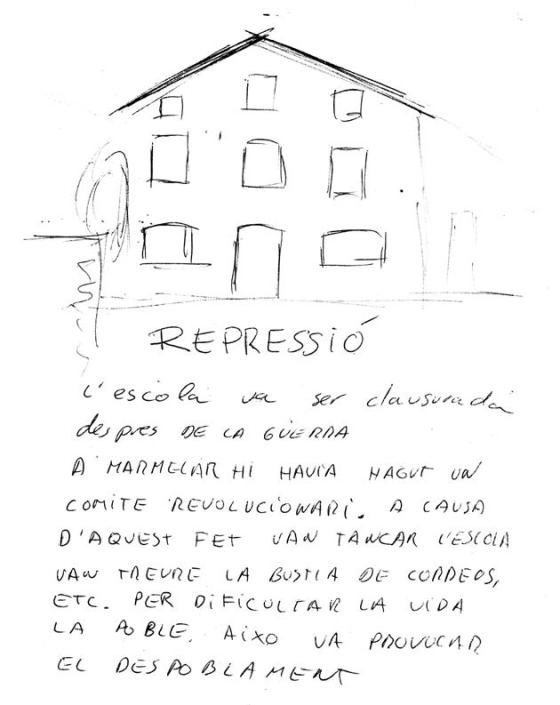 REPRESSIÓ
L'escola va ser clausurada
despres DE LA GUERRA
A MARMELAR HI HAVIA HAGUT UN
COMITE REVOLUCIONARI. A CAUSA
D'AQUEST FET VAN TANCAR L'ESCOLA
VAN TREURE LA BUSTIA DE CORREOS,
ETC. PER DIFICULTAR LA VIDA
LA POBLE. AIXO VA PROVOCAR
EL DESPOBLAMENT